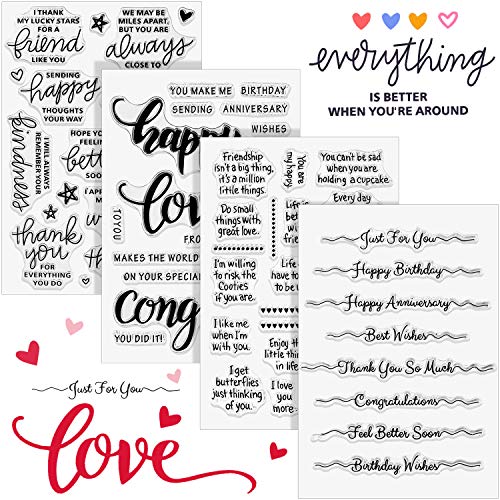 I THANK
MY LUCKY STARS
FOR A
friend
LIKE YOU
SENDING
happy
THOUGHTS
YOUR WAY
kindness
I WILL ALWAYS
REMEMBER YOUR
HOPE YOU
FEELIN
bette
SOO
I AP
thank
you
FOR
EVERYTHING
YOU DO
WE MAY BE
MILES APART,
BUT YOU ARE
always
CLOSE TO
YOU MAKE ME
BIRTHDAY
SENDING
ANNIVERSARY
happy
WISHES
love
TO YOU
FRO
MAKES THE WORLD
ON YOUR SPECIAL
Cong
YOU DID IT!
Friendship
isn't a big thing,
it's a million
little things.
You are
my happy
You can't be sad
when you are
holding a cupcake.
Do small
things with
great love.
Life is
bet
Every day
I'm willing
to risk the
Cooties
if you are.
Life
have to
to be
I like me
when I'm
with you.
Enjoy th
little thin
in life
I get
butterflies
just thinking
of you.
I love
you
more...
Just For You
Happy Birthday
Happy Anniversary
Best Wishes
Thank You So Much
Congratulations
Feel Better Soon
Birthday Wishes
everything
IS BETTER
WHEN YOU'RE AROUND
Just For You
love